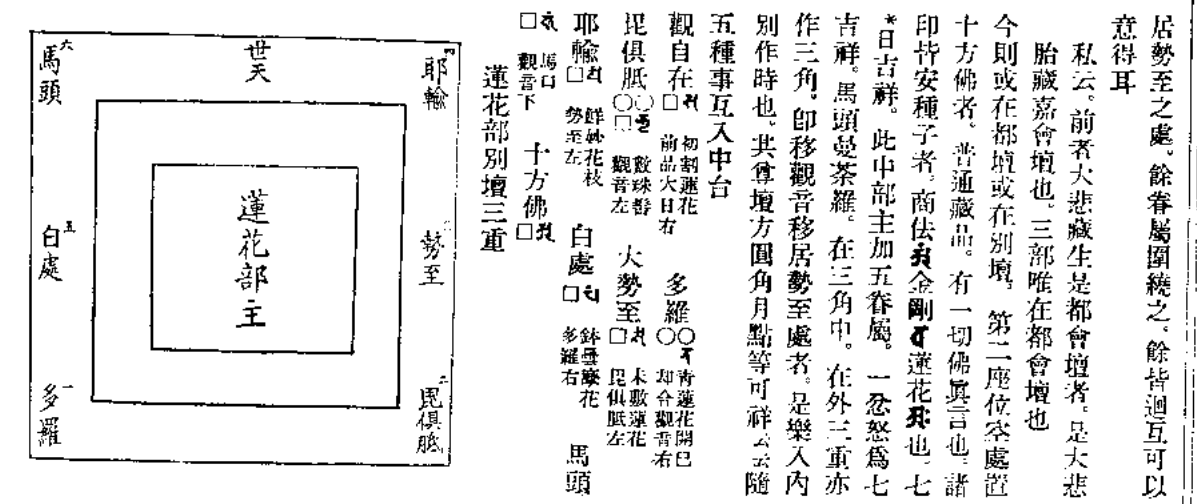 居勢至之處。餘眷屬圍繞之。餘皆迴互可以
意得耳
私云。前者大悲藏生是都會壇者。是大悲
胎藏嘉會壇也。三部唯在都會壇也
今則或在都壇或在別壇。第二座位空處置
十方佛者。普通藏品。有一切佛眞言也。諸
印皆安種子者。商佉金剛蓮花也。七
*日吉祥。此中部主加五眷屬。一忿怒爲七
吉祥。馬頭曼荼羅。在三角中。在外三重亦
作三角。卽移觀音移居勢至處者。是樂入內
別作時也。其尊壇方圓角月點等可祥云云隨
五種事互入中台
觀自在□ 初割蓮花 前品大日右 多羅○○ 青蓮花開已 却合觀音右
毘俱胝○□ 數珠鬘 觀音左 大勢至□ 未敷蓮花 毘俱胝左
耶輸□ 鮮妙花枝 勢至左 白處□ 鉢曇摩花 多羅右 馬頭
□ 馬口 觀音下 十方佛□
蓮花部別壇三重
耶輸
世天
六 馬頭
勢至
蓮花部主
五 白處
二 毘俱胝
一 多羅